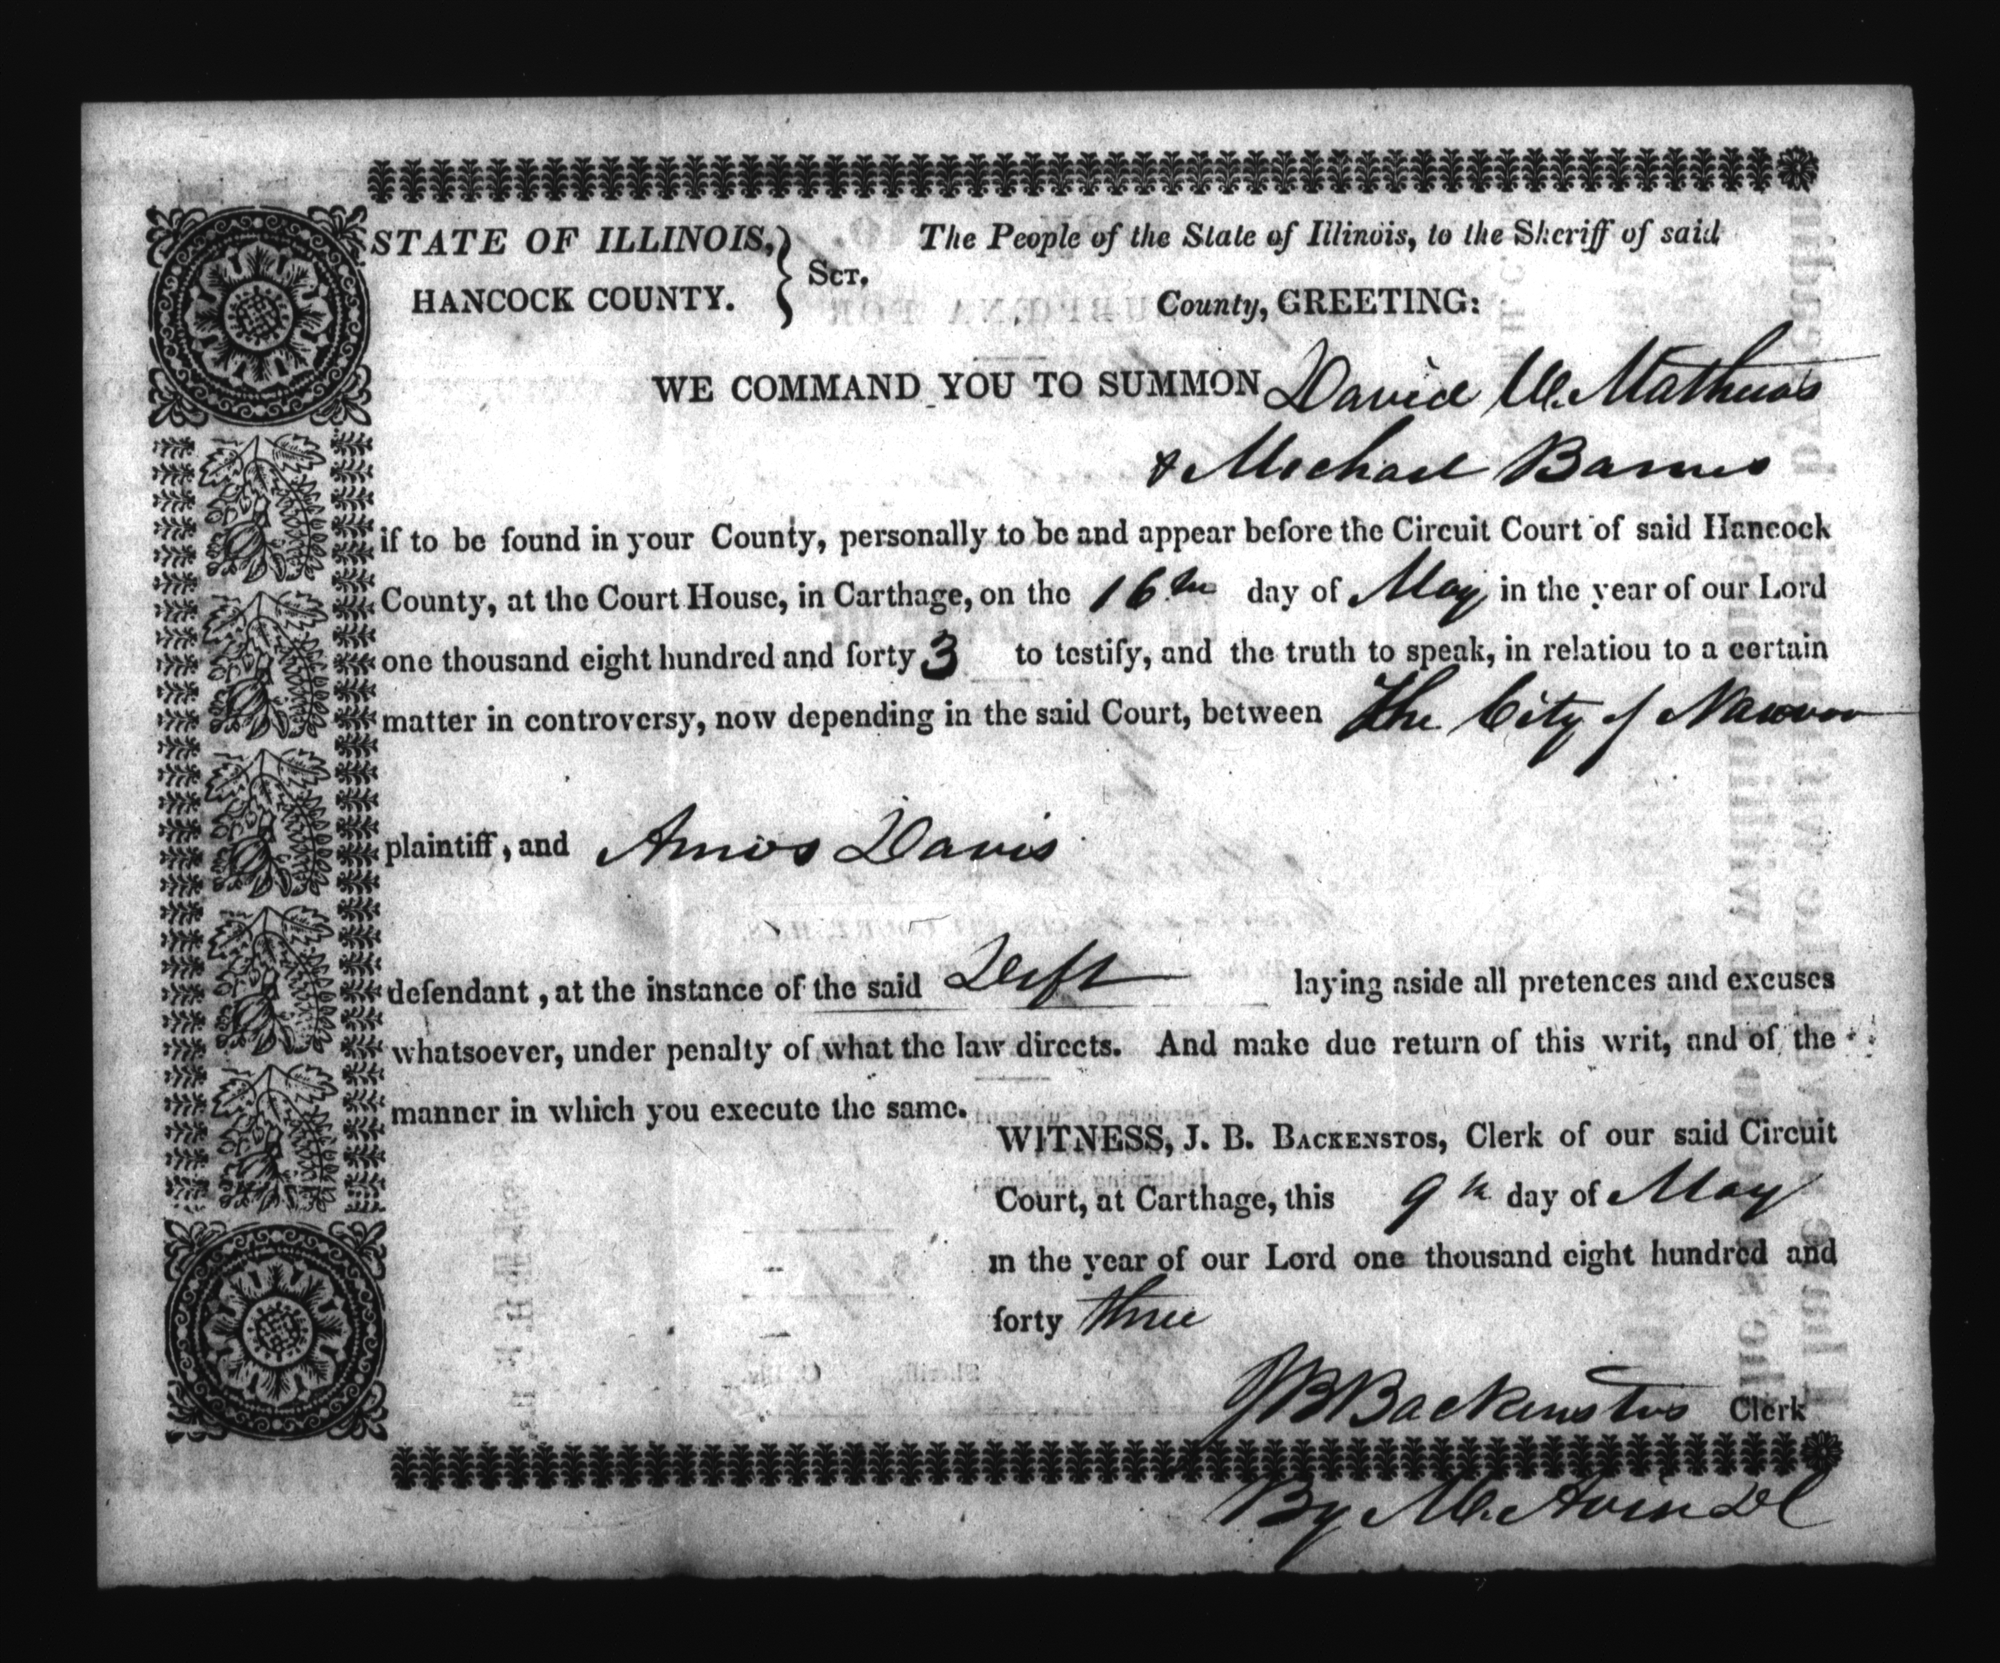 STATE OF ILLINOIS,} SCT. The People of the State of Illinois, to the Sheriff of said
HANCOCK COUNTY. County, GREETING:
WE COMMAND YOU TO SUMMON David W. Mathews
& Michael Barnes
if to be found in your County, personally to be and appear before the Circuit Court of said Hancock
County, at the Court House, in Carthage, on the 16th day of May in the year of our Lord
one thousand eight hundred and forty 3 to testify, and the truth to speak, in relatiou to a certain
matter in controversy, now depending in the said Court, between The City of Nauvoo
plaintiff, and Amos Davis
defendant, at the instance of the said Deft laying aside all pretences and excuses
whatsoever, under penalty of what the law directs. And make due return of this writ, and of the
manner in which you execute the same.
WITNESS, J. B. BACKENSTOS, Clerk of our said Circuit
Court, at Carthage, this 9th day of May
in the year of our Lord one thousand eight hundred and
forty three
J B Backenstos Clerk
By M. Avise